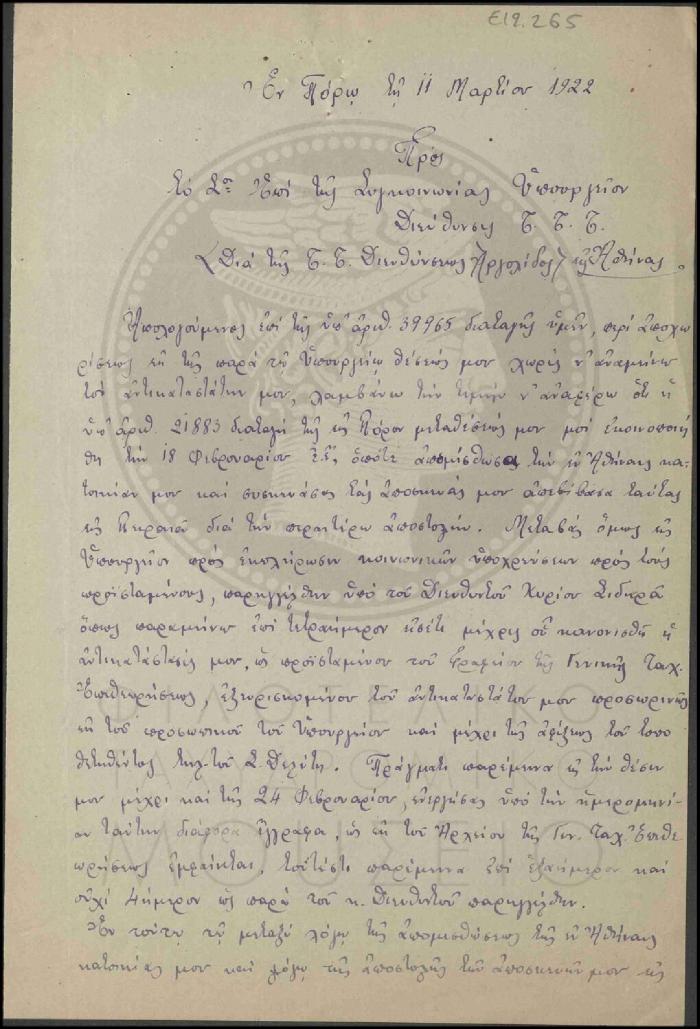 Ε19.265
Ἐν Πόρῳ τῇ 11 Μαρτίου 1922
Πρὸς
τὸ Σὸν Ἐπὶ τῆς Συγκοινωνίας Ὑπουργεῖον
Διεύθυνσις Τ. Τ. Τ.
(Διὰ τῆς Τ. Τ. Διευθύνσεως Ἀργολίδος) εἰς Ἀθήνας
Ἀπολογούμενος ἐπὶ τῆς ὑπ' ἀριθ. 39965 διαταγῆς ὑμῶν, περὶ ἀποχω
ρίσεως ἐκ τῆς παρὰ τῷ Ὑπουργείῳ θέσεώς μου χωρὶς ν' ἀναμείνω
τὸν ἀντικαταστάτην μου, λαμβάνω τὴν τιμὴν ν' ἀναφέρω ὅτι ἡ
ὑπ' ἀριθ. 21883 διαταγὴ τῆς εἰς Πόρον μεταθέσεώς μου μοὶ ἐκοινοποιή
θη τὴν 18 Φεβρουαρίου ἐ.ἔ., ὁπότε ἀπομίσθωσα τὴν ἐν Ἀθήναις κα
τοικίαν μου καὶ συσκευάσας τὰς ἀποσκευάς μου ἀπεβίβασα ταύτας
εἰς Πειραιᾶ διὰ τὴν περαιτέρω ἀποστολήν. Μεταβὰς ὅμως εἰς
Ὑπουργεῖον πρὸς ἐκπλήρωσιν κοινωνικῶν ὑποχρεώσεων πρὸς τοὺς
προϊσταμένους, παρηγγέλθην ὑπὸ τοῦ Διευθυντοῦ Κυρίου Σιδερᾶ
ὅπως παραμείνω ἐπὶ τετραήμερον εἰσέτι μέχρις οὗ κανονισθῇ ἡ
ἀντικατάστασίς μου, ὡς προϊσταμένου τοῦ Γραφείου τῆς Γενικῆς Ταχ.
Ἐπιθεωρήσεως, ἐξευρισκομένου τοῦ ἀντικαταστάτου μου προσωρινῶς
ἐκ τοῦ προσωπικοῦ τοῦ Ὑπουργείου καὶ μέχρι τῆς ἀφίξεως τοῦ τοπο
θετηθέντος τμλ-τοῦ Σ. Δελύτη. Πράγματι παρέμεινα εἰς τὴν θέσιν
μου μέχρι καὶ τῆς 24 Φεβρουαρίου, ἐνεργήσας ὑπὸ τὴν ἡμερομηνί
αν ταύτην διάφορα ἔγγραφα, ὡς ἐκ τοῦ Ἀρχείου τῆς Γεν. Ταχ. Ἐπιθε
ωρήσεως ἐμφαίνεται, τοὐτέστι παρέμεινα ἐπὶ ἑξαήμερον καὶ
οὐχὶ 4ήμερον ὡς παρὰ τοῦ κ. Διευθυντοῦ παρηγγέλθην.
Ἐν τούτῳ τῷ μεταξὺ λόγῳ τῆς ἀπομισθώσεως τῆς ἐν Ἀθήναις
κατοικίας μου καὶ λόγῳ τῆς ἀποστολῆς τῶν ἀποσκευῶν μου εἰς